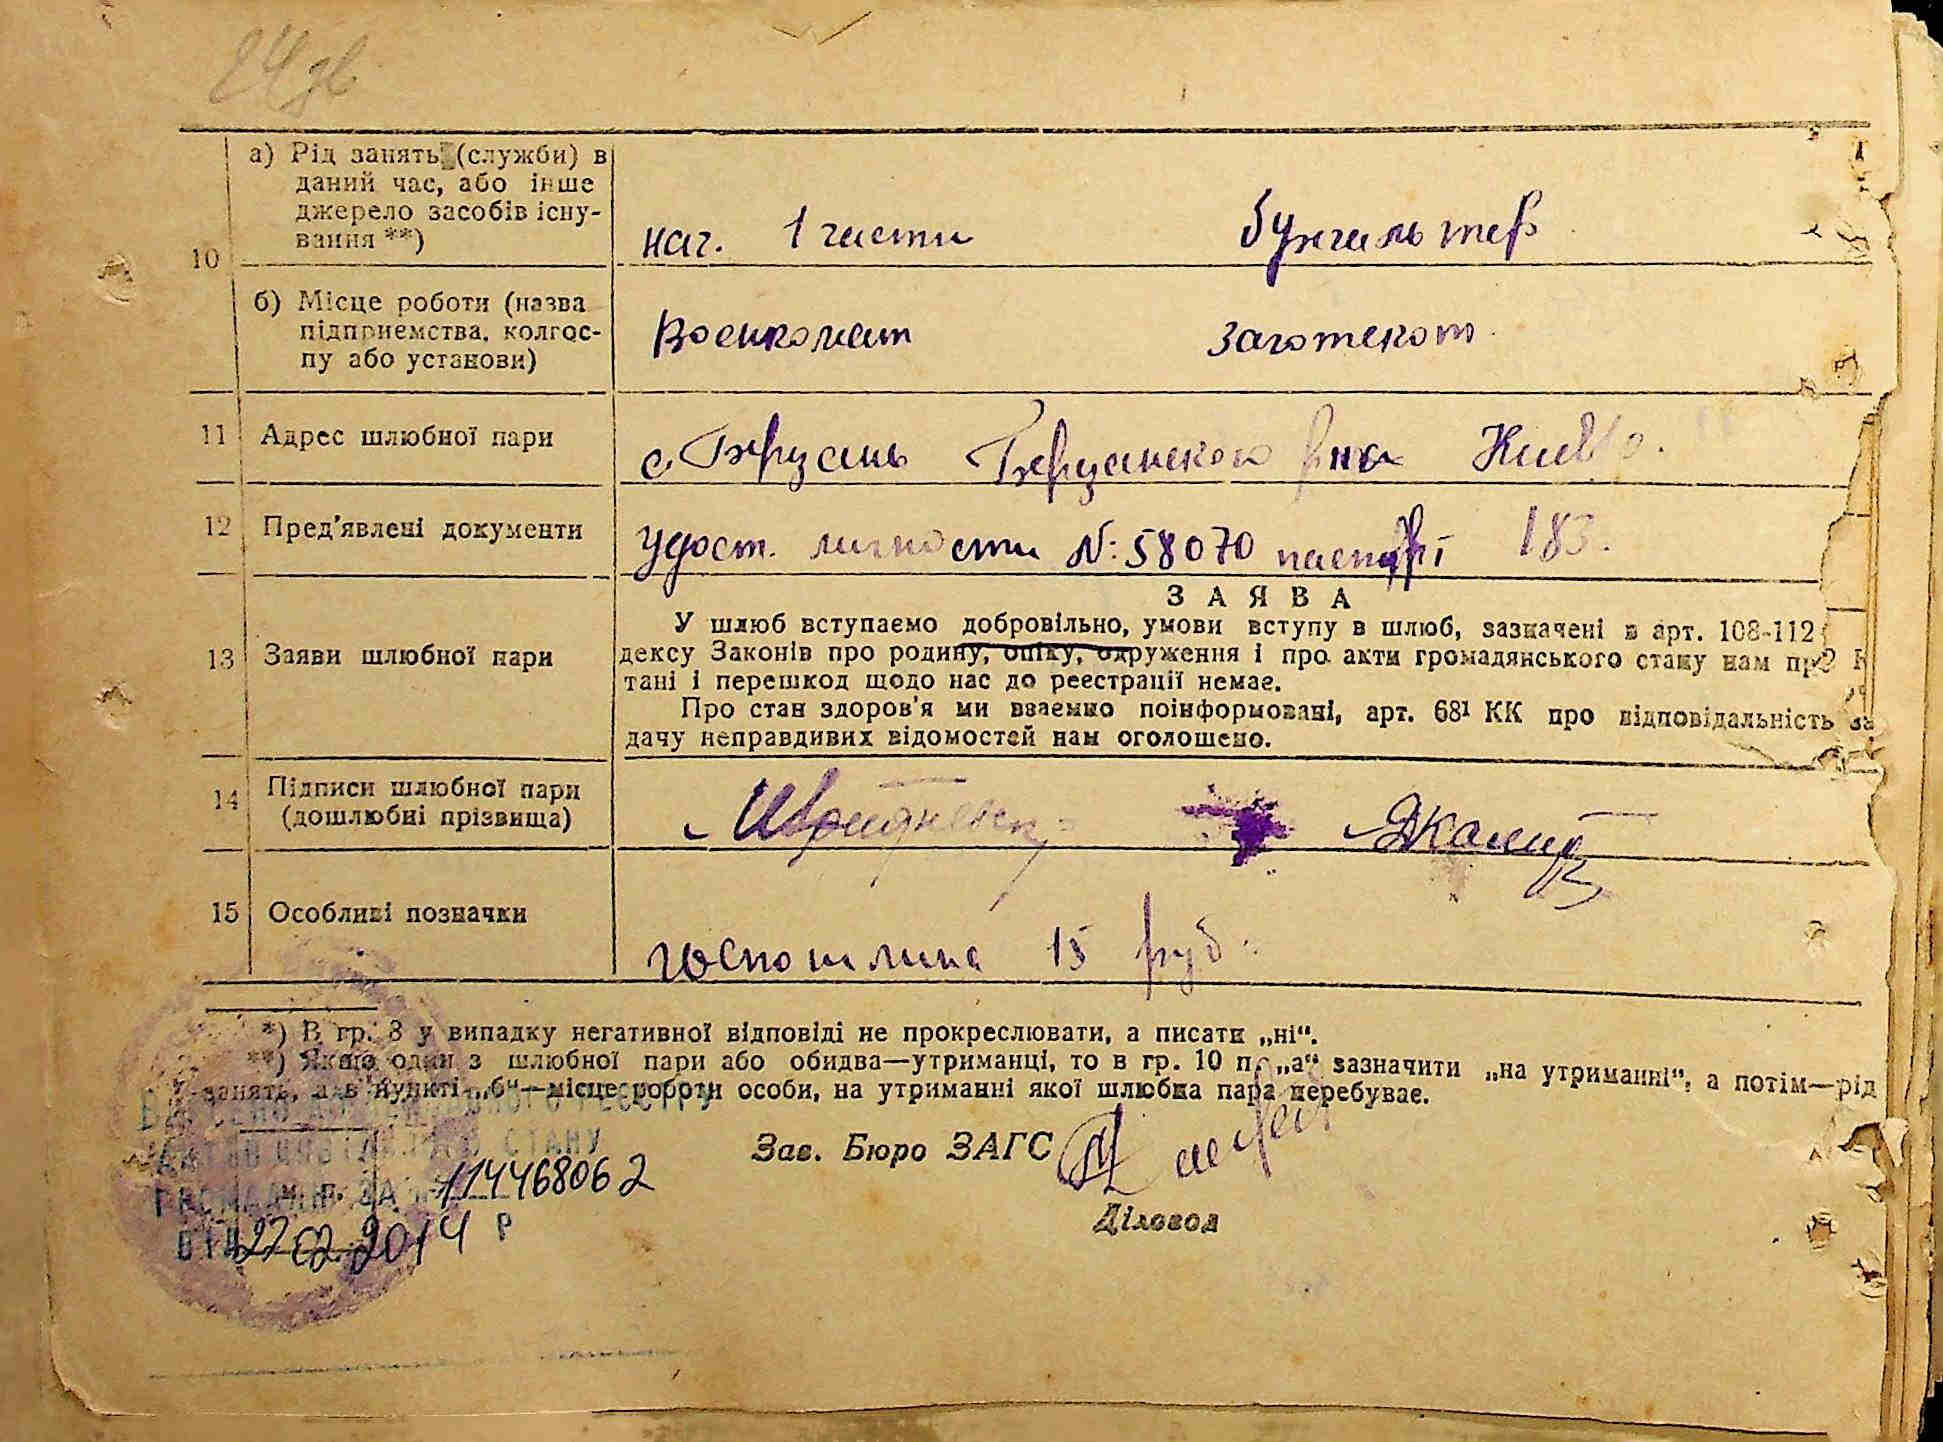 24 зв
а) Рід занять (служби) в
даний час, або інше
джерело засобів існу-
вання **)
10
нач. 1 части бухгальтер
б) Місце роботи (назва
підприємства, колгос-
пу або установи)
Военкомат Заготскот
11 Адрес шлюбної пари
с. Березань Березанского р-на Киев
12 Пред'явлені документи
удост. личности №: 58070 паспорт 183.
ЗАЯВА
У шлюб вступаємо добровільно, умови вступу в шлюб, зазначені в арт. 108-112
13 Заяви шлюбної пари
дексу Законів про родину, опіку, одруження і про акти громадянського стану нам
тані і перешкод щодо нас до реєстрації немає.
Про стан здоров'я ми взаємно поінформовані, арт. 68¹ КК про відповідальність за
дачу неправдивих відомостей нам оголошено.
14 Підписи шлюбної пари
(дошлюбні прізвища)
15 Особливі позначки
госпошлина 15 руб.
*) В гр. 8 у випадку негативної відповіді не прокреслювати, а писати „ні“.
**) Якщо один з шлюбної пари або обидва—утриманці, то в гр. 10 п. „а“ зазначити „на утриманні“, а потім—рід
занять, а в пункті „б“—місце роботи особи, на утриманні якої шлюбна пара перебуває.
Зав. Бюро ЗАГС
СТАНУ
м. п.
ГРОМАДЯН ЗА № 114468062
Діловод
ВІД 27.02.2014 Р